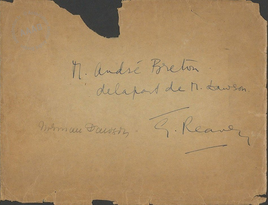 M. André Breton
de la part de M. Dawson
G. Reavey